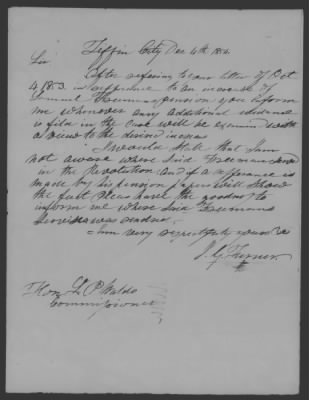 Tiffin City Dec 4th 185
Sir
After refering to your letter of Oct
4 1853 in refference to an increase of
Samuel Freemans pension, you inform
me whenever any additional evidence
is filed in the case will be examined with
a view to the desired increase
I would state that I am
not aware where said Freeman served
in the Revolution and if a refferance is
made by his pension papers will show
the fact Pleas have the goodness to
inform me where said Freemans
Service was rendred
I am very respectfully yours &c
J. G. Turner
Hon L P Waldo
Commissioner